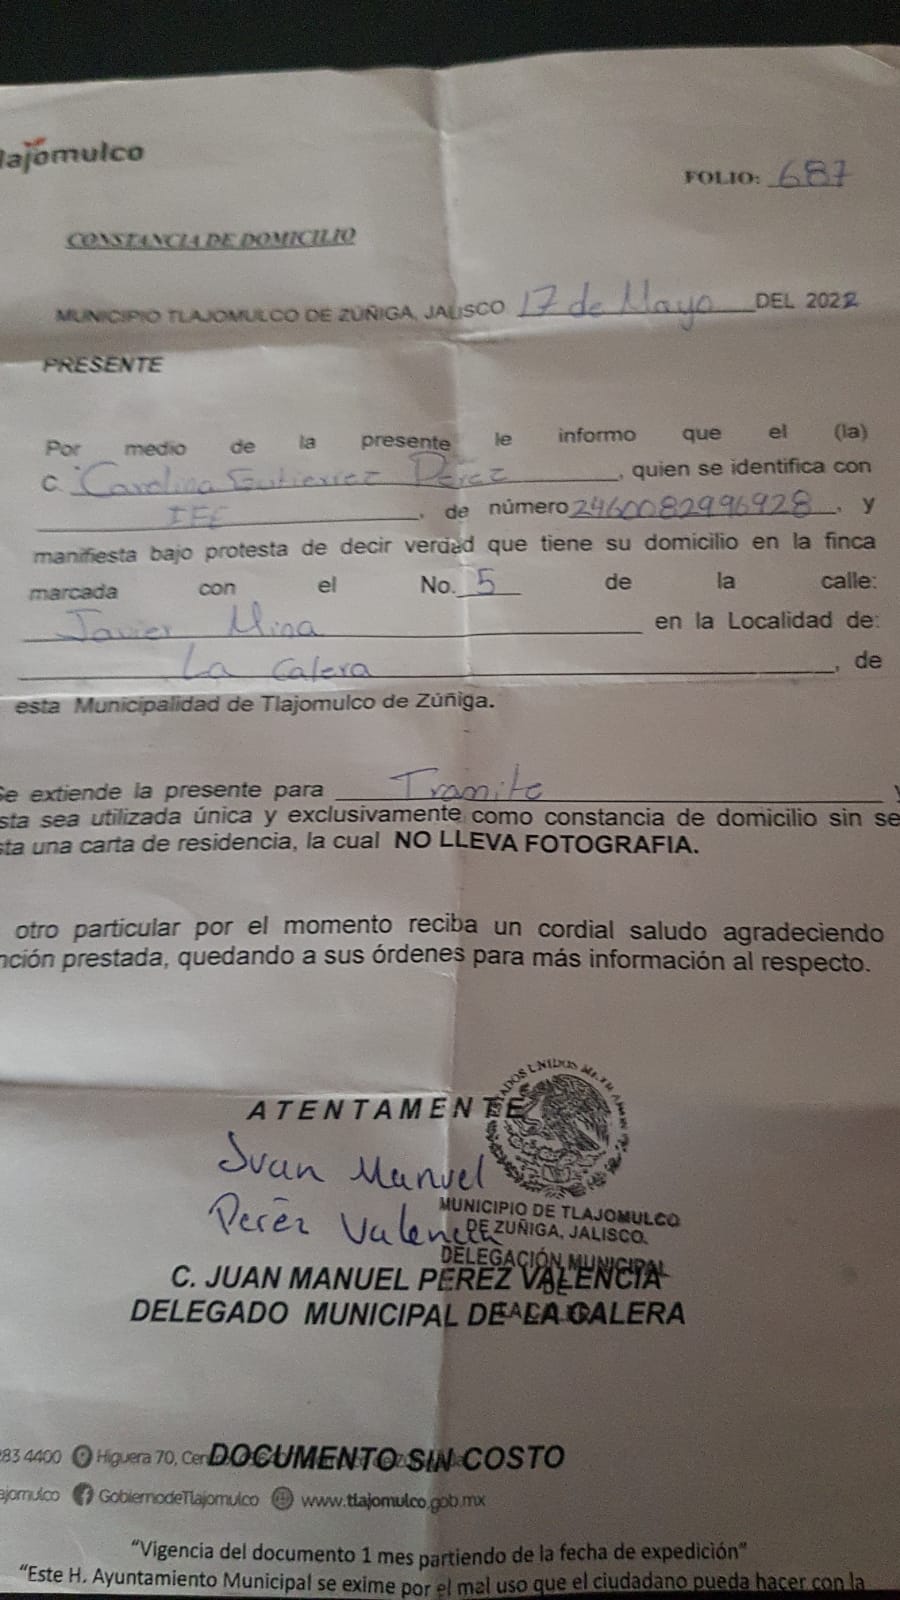 lajomulco
FOLIO: 687
CONSTANCIA DE DOMICILIO
MUNICIPIO TLAJOMULCO DE ZÚÑIGA, JALISCO 17 de Mayo DEL 2022
PRESENTE
Por medio de la presente le informo que el (la)
C. Carolina Gutierrez Pérez, quien se identifica con
IFE, de número 2460082996928, y
manifiesta bajo protesta de decir verdad que tiene su domicilio en la finca
marcada con el No. 5 de la calle:
Javier Mina en la Localidad de:
La Calera, de
esta Municipalidad de Tlajomulco de Zúñiga.
Se extiende la presente para Tramite y
sta sea utilizada única y exclusivamente como constancia de domicilio sin se
sta una carta de residencia, la cual NO LLEVA FOTOGRAFIA.
otro particular por el momento reciba un cordial saludo agradeciendo
nción prestada, quedando a sus órdenes para más información al respecto.
ESTADOS UNIDOS MEXICANOS
ATENTAMENTE
Juan Manuel
Peréz Valencia
MUNICIPIO DE TLAJOMULCO
DE ZUÑIGA, JALISCO.
DELEGACIÓN MUNICIPAL
DE
C. JUAN MANUEL PEREZ VALENCIA
DELEGADO MUNICIPAL DE LA CALERA
283 4400 Higuera 70, Cen
DOCUMENTO SIN COSTO
ajomulco GobiernodeTlajomulco www.tlajomulco.gob.mx
"Vigencia del documento 1 mes partiendo de la fecha de expedición"
"Este H. Ayuntamiento Municipal se exime por el mal uso que el ciudadano pueda hacer con la